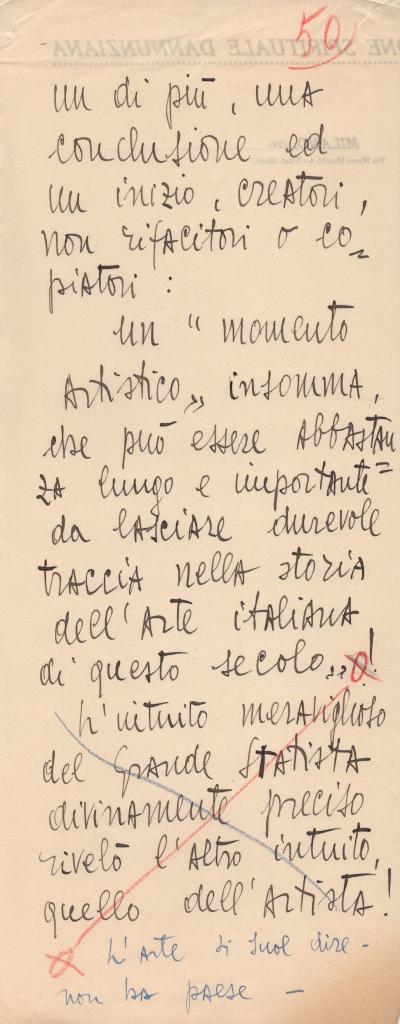 50
NE SPIRITUALE DANNUNZIANA
MILANO
un di più, una
conclusione ed
un inizio, creatori,
non rifacitori o co=
piatori :
un " momento
Artistico „ insomma,
che può essere abbastan
za lungo e importante =
da lasciare durevole
traccia nella storia
dell'Arte italiana
di questo secolo..!
L'intuito meraviglioso
del Grande Statista
divinamente preciso
rivelò l'altro intuito,
quello dell'Artista!
L'Arte si suol dire -
non ha paese -